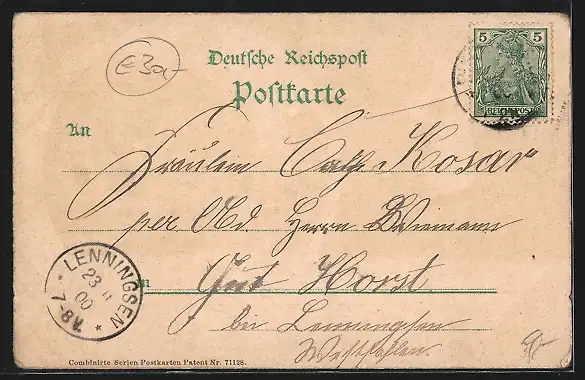 E3a-
Deutsche Reichspost
Postkarte
5 5
REICHSPOST
An
Fräulein Cath. Kosar
per Abd. Herrn Wiemann
in Gut Horst
bei Lenningsen
Westfalen.
LENNINGSEN
23
00
7-8V.
Combinirte Serien Postkarten Patent Nr. 71128.